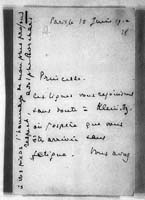 Paris le 10 Juin 19
Princesse.
Ces lignes vous rejoindront
sans doute à
où j'espère que vous
êtes arrivée sans
fatigue. Vous avez
l'hommage de mon plus profond
respect